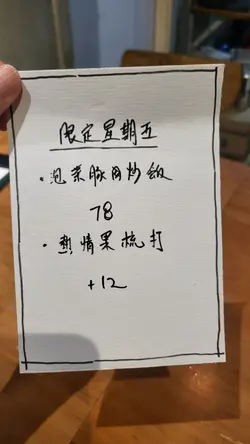 限定星期五
· 泡菜豚肉炒飯
78
· 熱情果梳打
+12